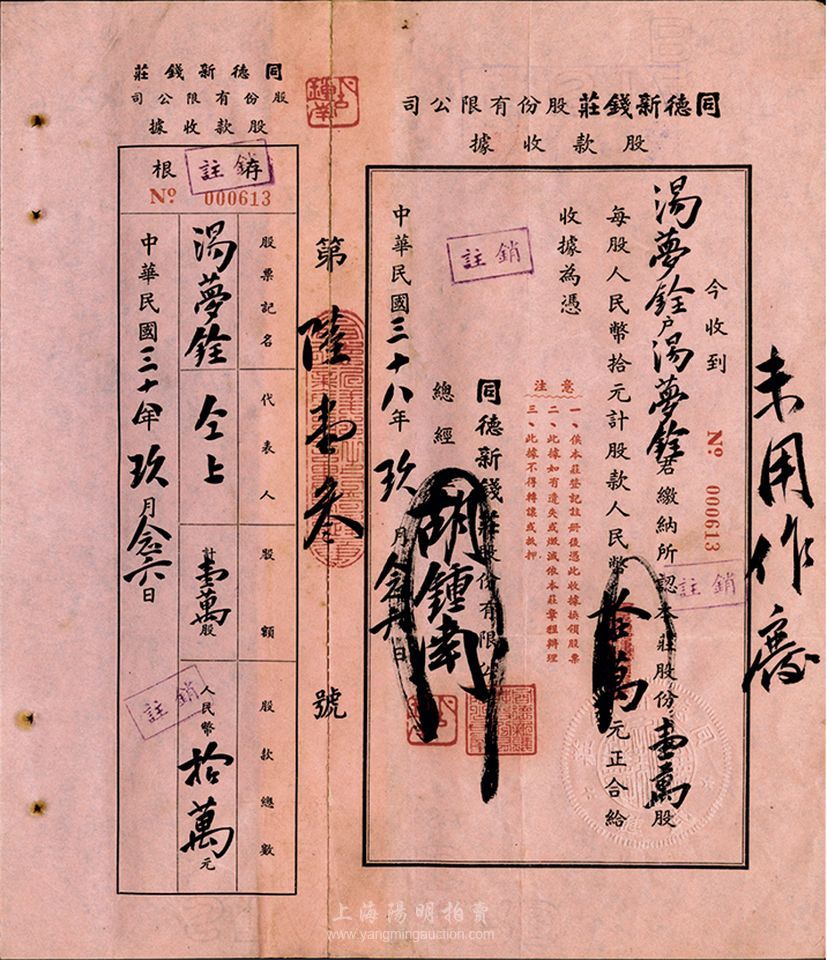 同德新錢莊股份有限公司
股款收據
今收到
№ 000613
湯夢銓户湯夢銓君繳納所認本莊股份壹萬股
每股人民幣拾元計股款人民幣拾萬元正合給
收據為憑
注意
一、俟本莊登記註册後憑此收據換領股票
二、此據如有遺失或燬滅依本莊章程辦理
三、此據不得轉讓或抵押
同德新錢莊股份有限公
總經
胡鍾南
中華民國三十八年玖月念六日
未用作廢
註銷
註銷
第陸壹叁號
同德新錢莊
股份有限公司
股款收據
存根
註銷
№ 000613
股票記名
代表人
股額
股款總數
湯夢銓
仝上
計壹萬股
人民幣拾萬元
中華民國三十八年玖月念六日
註銷
上海陽明拍賣
www.yangmingauction.com